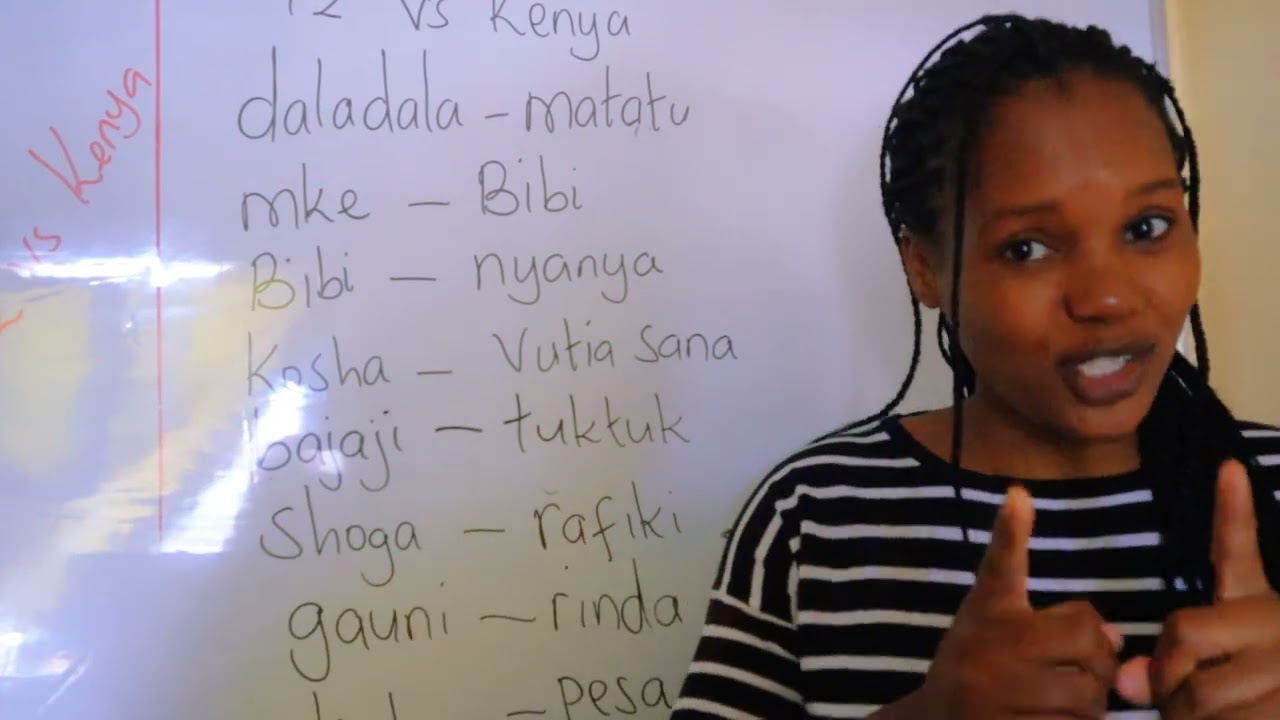 vs Kenya
TZ vs Kenya
daladala – matatu
mke – Bibi
Bibi – nyanya
Kosha – Vutia sana
bajaji – tuktuk
Shoga – rafiki
gauni – rinda
– pesa